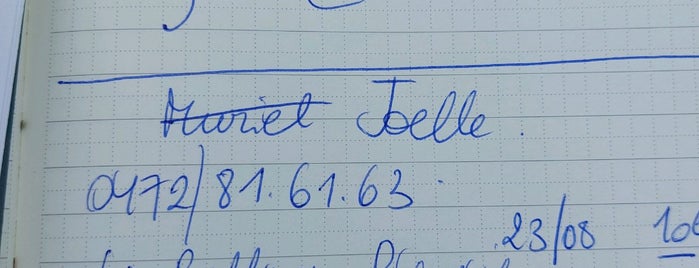 ~~Muriel~~ Joelle.
0472/81.61.63.
23/08